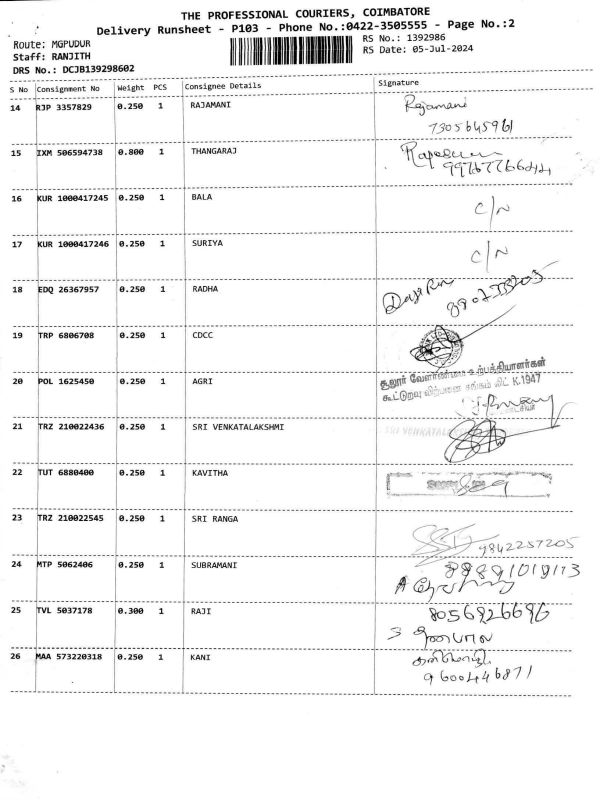 THE PROFESSIONAL COURIERS, COIMBATORE
Delivery Runsheet - P103 - Phone No.:0422-3505555 - Page No.:2
Route: MGPUDUR
RS No.: 1392986
Staff: RANJITH
RS Date: 05-Jul-2024
DRS No.: DCJB139298602
S No Consignment No Weight PCS Consignee Details Signature
14 RJP 3357829 0.250 1 RAJAMANI Rajamani
7305645961
15 IXM 506594738 0.800 1 THANGARAJ
16 KUR 1000417245 0.250 1 BALA C/N
17 KUR 1000417246 0.250 1 SURIYA C/N
18 EDQ 26367957 0.250 1 RADHA
19 TRP 6806708 0.250 1 CDCC
சூலூர் வேளாண்மை உற்பத்தியாளர்கள்
20 POL 1625450 0.250 1 AGRI கூட்டுறவு விற்பனை சங்கம் லிட் K.1947
21 TRZ 210022436 0.250 1 SRI VENKATALAKSHMI SRI VENKATALA
22 TUT 6880400 0.250 1 KAVITHA
23 TRZ 210022545 0.250 1 SRI RANGA
9842257205
24 MTP 5062406 0.250 1 SUBRAMANI
25 TVL 5037178 0.300 1 RAJI 8056926696
26 MAA 573220318 0.250 1 KANI கனிமொழி
9600446871